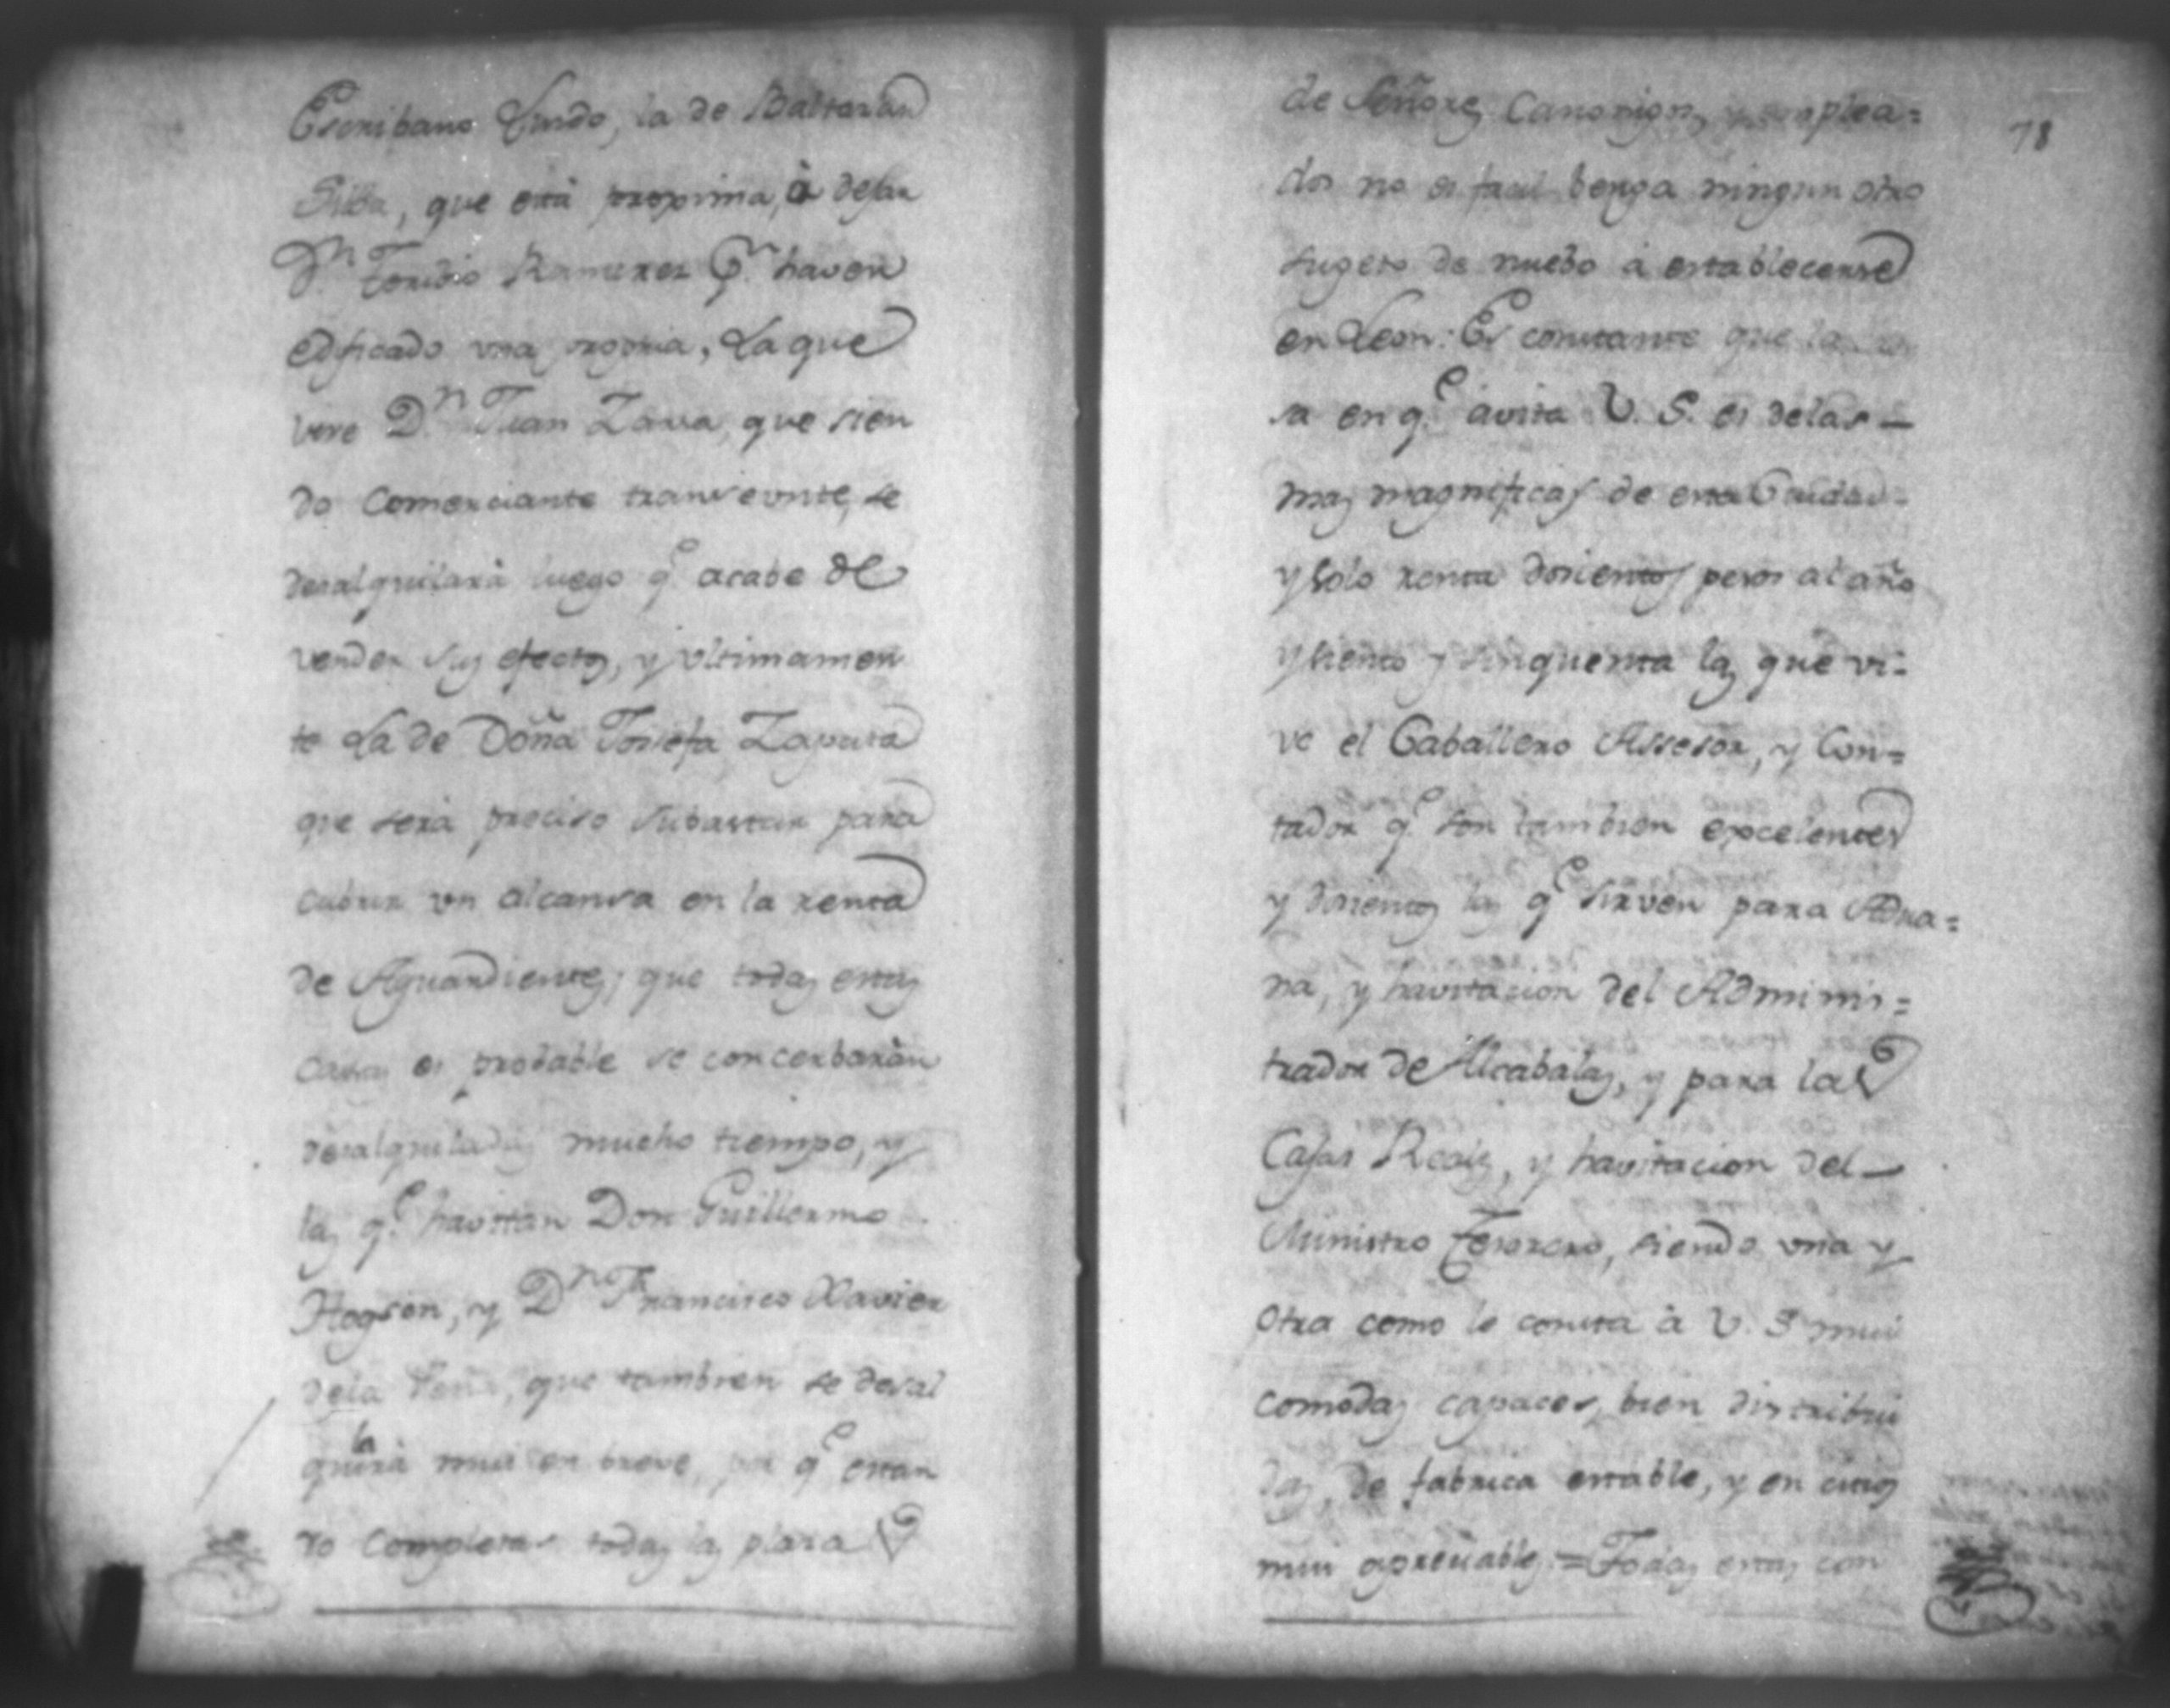 Escribano Guido, la de Baltasar
Silba, que está proxima, à dejar
Dn. Toribio Ramirez Pr. haver
edificado vna propia, La que
vive Dn. Juan Zavia, que sien
do Comerciante transeunte, se
desalquilarà luego qe. acabe de
vender sus efectos, y vltimamen
te La de Doña Josefa Zapata
que serà preciso subastar para
cubrir vn alcanza en la renta
de Aguardientes; que todas estas
casas es probable se concerbaràn
desalquiladas mucho tiempo, y
las qe. havitan Don Guillermo
Hogson, y Dn. Francisco Xavier
dela Peña, que tambien se desal
quilarà mui en breve, por qe. estan
do completas todas las plaza
78
de Señores Canonigos, y emplea=
dos no es facil benga ningun otro
sugeto de nuebo à establecerse
en Leon: Es constante que la
sa en qe. avita V. S. es delas
mas magnificas de esta Ciudad
y solo renta dosientos pesos al año
y siento y sinquenta las que vi=
ve el Caballero Assesor, y Con=
tador qe. son tambien excelentes
y dosientos las qe. sirven para Adua=
na, y havitacion del Adminis=
trador de Alcabalas, y para la
Casas Reales, y havitacion del
Ministro Tesorero, siendo vna y
otra como le consta à V. S. mui
comodas capaces, bien distribui
das, de fabrica estable, y en citios
mui apreciables = Todas estas con